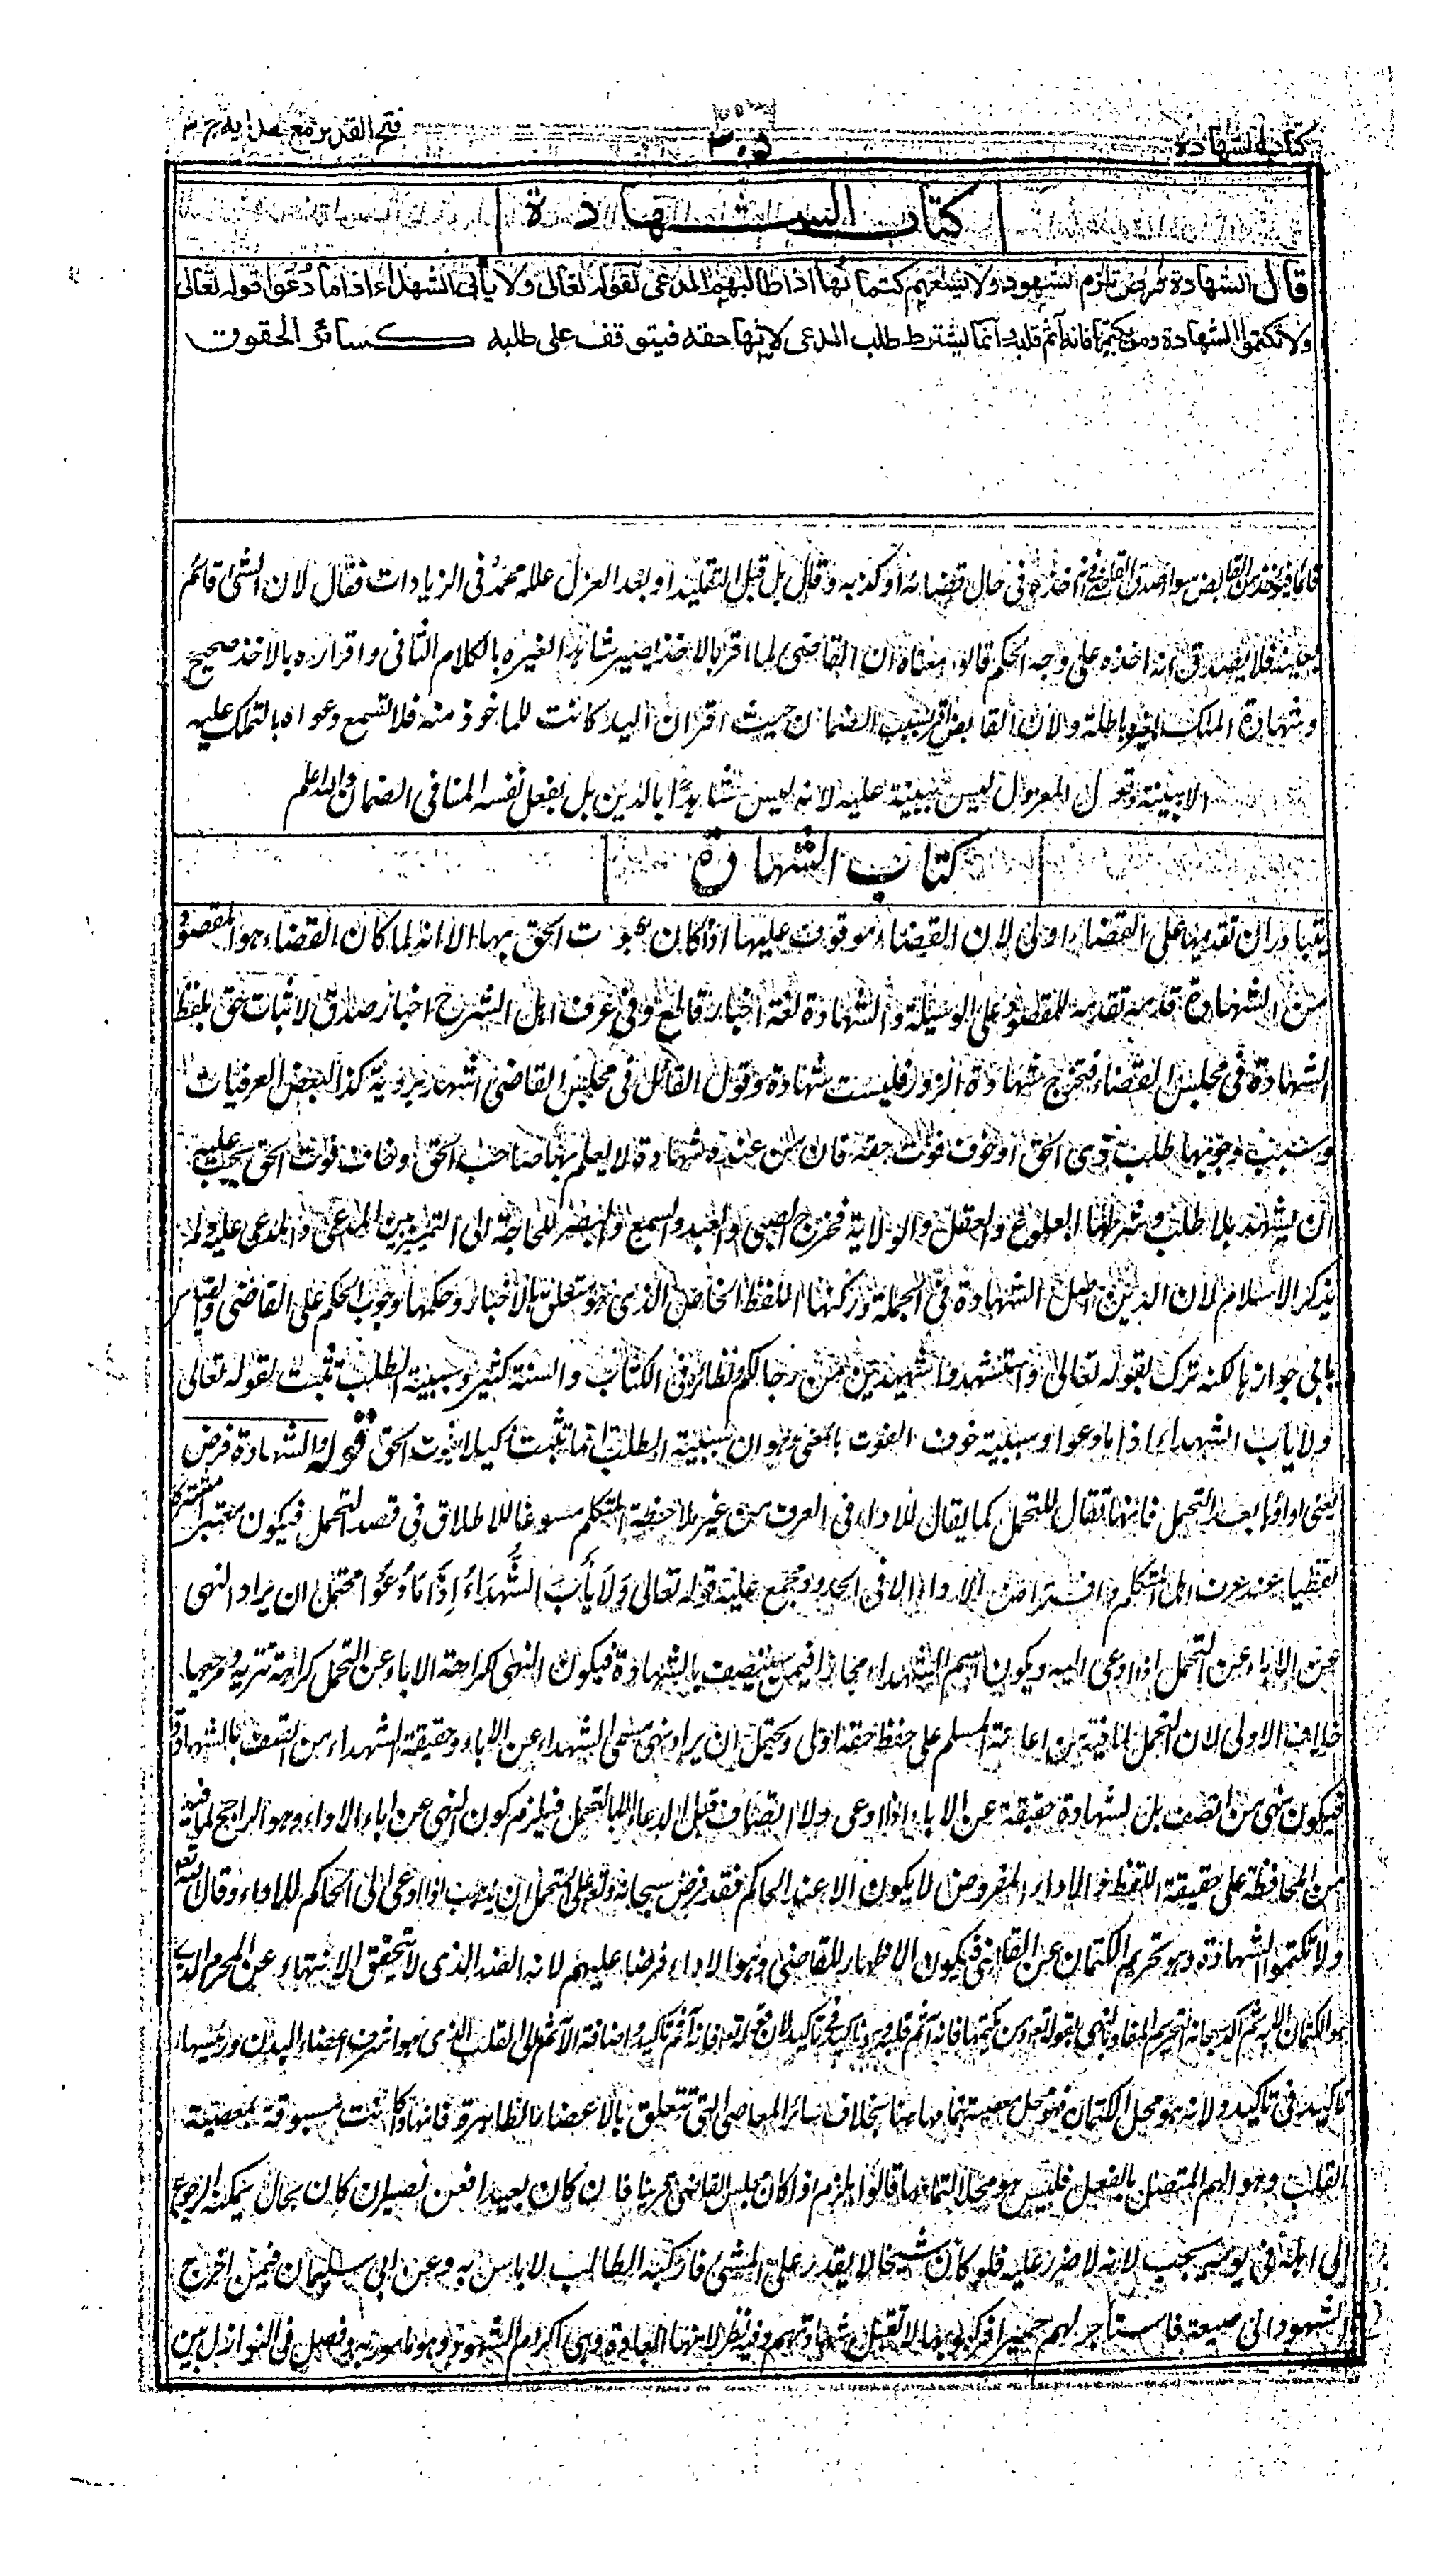 كتاب الشهادة
فتح القدير مع هداية ج ٣
كتاب الشهادة
قال الشهادة فرض تلزم الشهود ولا يسعهم كتمانها اذا طالبهم المدعى لقوله تعالى ولا يأبى الشهداء اذا ما دعوا وقوله تعالى
ولا تكتموا الشهادة ومن يكتمها فانه آثم قلبه وانما يشترط طلب المدعى لانها حقه فيتوقف على طلبه كسائر الحقوق
قائما فيؤخذ من القابض سواء صدق القاضى فى انه اخذه فى حال قضائه او كذبه وقال بل قبل التقليد او بعد العزل علله محمد فى الزيادات فقال لان الشئ قائم
بعينه فلا يصدق انه اخذه على وجه الحكم قالوا معناه ان القاضى لما اقر بالاخذ يصير شاهدا لغيره بالكلام الثانى واقراره بالاخذ صحيح
وشهادة الملك لغيره باطلة ولان القابض اقر بسبب الضمان حيث اقر ان اليد كانت للماخوذ منه فلا تسمع دعواه بالتملك عليه
الا ببينة وقول المعزول ليس ببينة عليه لانه ليس شاهدًا بالدين بل بفعل نفسه المنافى الضمان والله اعلم
كتاب الشهادة
يتبادر ان تقديمها على القضاء اولى لان القضاء موقوف عليها اذا كان ثبوت الحق بها الا انه لما كان القضاء هو المقصود
من الشهادة قدمه تقديما للمقصود على الوسيلة والشهادة لغة اخبار قاطع وفى عرف اهل الشرع اخبار صدق لاثبات حق بلفظ
الشهادة فى مجلس القضاء فتخرج شهادة الزور فليست شهادة وقول القائل فى مجلس القاضى اشهد برؤية كذا لبعض العرفيات
وسبب وجوبها طلب ذى الحق او خوف فوت حقه فان من عنده شهادة لا يعلم بها صاحب الحق وخاف فوت الحق يجب عليه
ان يشهد بلا طلب وشرطها البلوغ والعقل والولاية فخرج الصبى والعبد والسمع والبصر للحاجة الى التمييز بين المدعى والمدعى عليه ولم
يذكر الاسلام لان الدين اهل الشهادة فى الجملة وركنها اللفظ الخاص الذى هو متعلق الاخبار وحكمها وجوب الحكم على القاضى والقياس
يابى جوازها لكنه ترك بقوله تعالى واستشهدوا شهيدين من رجالكم ونظائره فى الكتاب والسنة كثير وسببية الطلب ثبت بقوله تعالى
ولا يأب الشهداء اذا ما دعوا وسببية خوف الفوت بالمعنى وهو ان سببية الطلب انما تثبت كيلا يفوت الحق قوله والشهادة فرض
يعنى اداؤها بعد التحمل فانها تقال للتحمل كما يقال للاداء فى العرف من غير ملاحظة المتكلم مسوغا للاطلاق فى قصد التحمل فيكون معتبرا مشتركا
لفظيا عند عرف اهل التكلم وافتراض الاداء الا فى الحدود مجمع عليه قوله تعالى وَلَا يَأْبَ الشُّهَدَاءُ إِذَا مَا دُعُوا محتمل ان يراد النهى
عن الاباء عن التحمل اذا دعى اليه ويكون اسم الشهداء مجازا فيمن سيتصف بالشهادة فيكون النهى لكراهة الاباء عن التحمل كراهة تنزيه ومرجعها
خلاف الاولى لان التحمل لما فيه من اعانة المسلم على حفظ حقه اولى ويحتمل ان يراد نهى مسمى الشهداء عن الاباء وحقيقة الشهداء من اتصف بالشهادة
فيكون نهى من اتصف بالشهادة حقيقة عن الاباء اذا دعى ولا اتصاف قبل الاداء الا بالتحمل فيلزم كون النهى عن اباء الاداء وهو الراجح لما فيه
من المحافظة على حقيقة اللفظ والاداء المفروض لا يكون الا عند الحاكم فقد فرض سبحانه وتعالى على المتحمل ان يذهب اذا دعى الى الحاكم للاداء وقال تعالى
ولا تكتموا الشهادة وهو تحريم الكتمان عن القاضى فيكون الاظهار للقاضى وهو الاداء فرضا عليهم لانه الضد الذى لا يتحقق الانتهاء عن المحرم الذى
هو الكتمان الا به ثم اكد سبحانه التحريم المفاد بالنهى بقوله تعالى ومن يكتمها فانه آثم قلبه وهو تاكيد فى تاكيد لان قوله تعالى فانه آثم تاكيد واضافة الآثم الى القلب الذى هو اشرف اعضاء البدن ورئيسها
تاكيد فى تاكيد ولانه هو محل الكتمان فهو محل معصيته بتمامها هنا بخلاف سائر المعاصى التى تتعلق بالاعضاء الظاهرة فانها وكانت مسبوقة بمعصية
القلب وهو الهم المتصل بالفعل فليس هو محلا لتمامها قالوا يلزم اذا كان مجلس القاضى قريبا فان كان بعيدا فعن نصير ان كان بحال يمكنه الرجوع
الى اهله فى يومه يجب لانه لا ضرر عليه فلو كان شيخا لا يقدر على المشى فاركبه الطالب لا باس به وعن ابى سليمان فيمن اخرج
الشهود الى ضيعة فاستاجر لهم حميرا فركبوها لا تقبل شهادتهم وفيه نظر لانها العادة وهى اكرام الشهود وهو مامور به وفصل فى النوازل بين